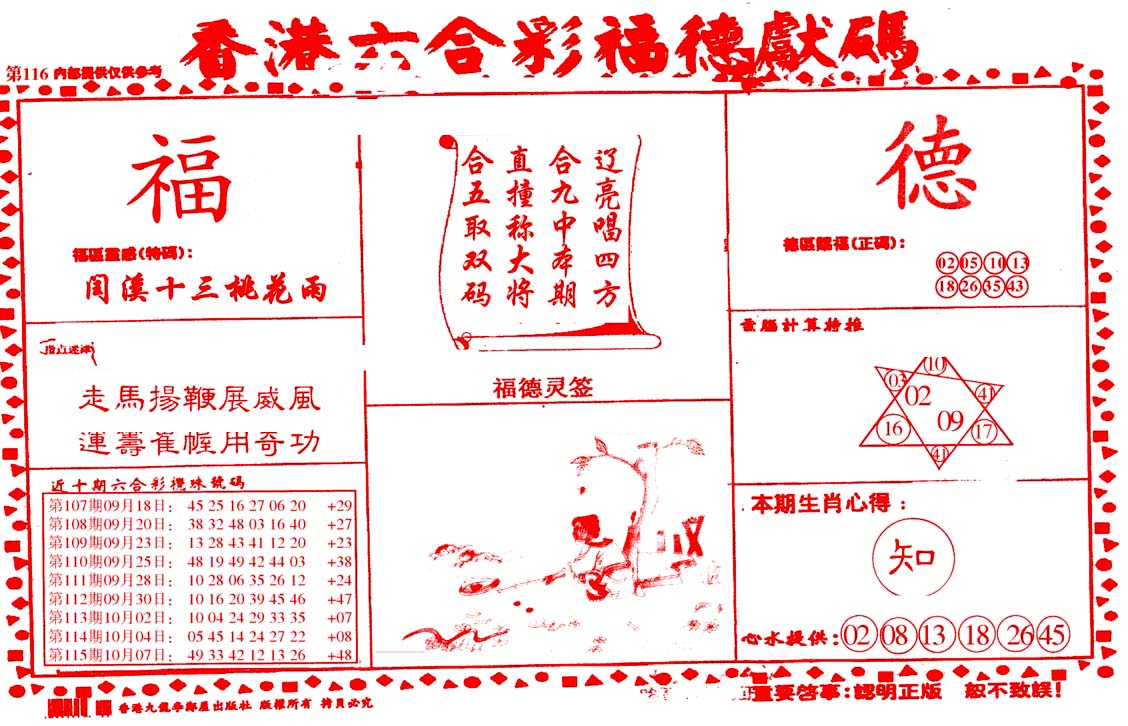 香港六合彩福德獻碼
第116 内部提供仅供参考
福
福區靈感(特碼)：
閏溪十三桃花雨
辽亮唱四方
合九中本期
直撞称大将
合五取双码
福德灵签
德
德區賜福(正碼)：
02 05 10 13
18 26 35 43
指点迷津
走馬揚鞭展威風
連壽崔幄用奇功
電腦計算特推
10
03 02 41
16 09 17
41
近十期六合彩攪珠號碼
第107期09月18日： 45 25 16 27 06 20 +29
第108期09月20日： 38 32 48 03 16 40 +27
第109期09月23日： 13 28 43 41 12 20 +23
第110期09月25日： 48 19 49 42 44 03 +38
第111期09月28日： 10 28 06 35 26 12 +24
第112期09月30日： 10 16 20 39 45 46 +47
第113期10月02日： 10 04 24 29 33 35 +07
第114期10月04日： 05 45 14 24 27 22 +08
第115期10月07日： 49 33 42 12 13 26 +48
本期生肖心得：
知
心水提供: 02 08 13 18 26 45
香港九龍李鄭屋出版社 版權所有 拷貝必究
重要啓事:認明正版 恕不致誤!